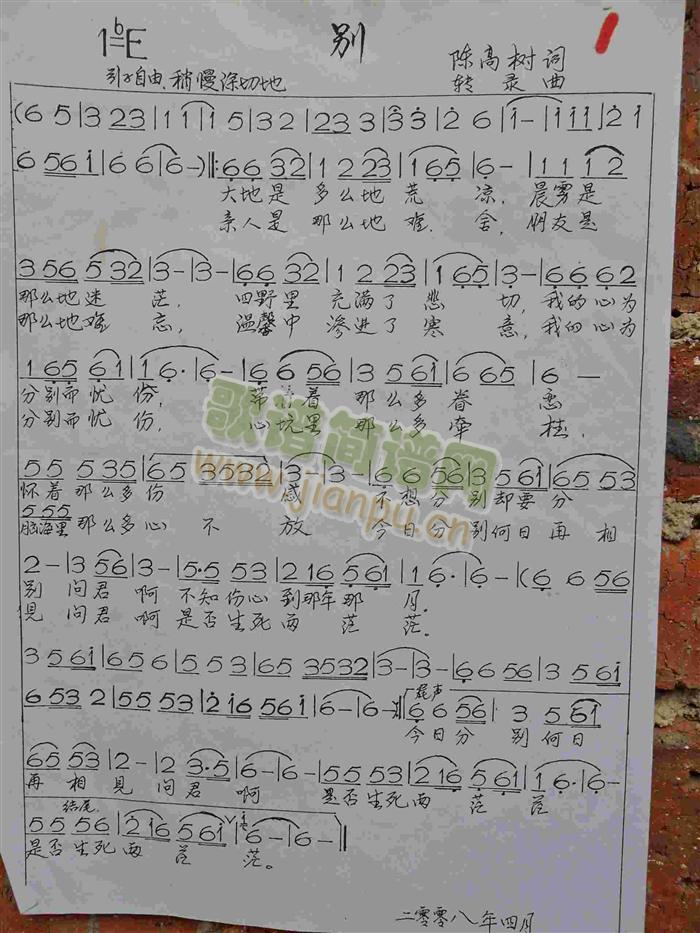 1=bE 别
陈高树 词
转录 曲
引子自由、稍慢深切地
(6 5 | 3 23 | 1 1 | 1 5 | 3 2 | 23 3 | 3 3 | 2 6 | 1 - | 1 11 | 2 1
6 561 | 6 6 | 6 - ) ‖: 66 32 | 1 2 23 | 1 65 | 6 - | 1 1 1 2
大地是 多么地 荒 凉, 晨雾是
亲人是 那么地 难 舍, 朋友是
3 56 5 32 | 3 - | 3 - | 66 32 | 1 2 23 | 1 65 | 3 - | 66 62
那么地迷 茫, 四野里 充满了 悲 切, 我的心为
那么地难 忘, 温馨中 渗进了 寒 意, 我的心为
1 65 61 | 1 6· | 6 - | 6 6 56 | 3 5 61 | 6 65 | 6 -
分别而忧 伤, 带 着 那么多 眷 恋
分别而忧 伤, 心坑里 那么多 牵 挂,
55 535 | 65 3532 | 3 - | 3 - | 6 6 56 | 3 5 61 | 65 53
怀着那么多伤 感 不想分 别却要分
555
脑海里那么多心 不 放 今日分 别何日再 相
2 - | 3 56 | 3 - | 5·5 53 | 2 16 5 61 | 1 6· | 6 - | (6 6 56
别 问君 啊 不知伤心到那年那 月.
见 问君 啊 是否生死两 茫 茫.
3 5 61 | 65 6 | 55 53 | 65 3532 | 3 - | 3 - | 6 6 56 | 3 5 61
6 53 2 | 55 53 | 2 16 5 61 | 6 - | 6 - :‖ 尾声 6 6 56 | 3 5 61
今日分 别何日
65 53 | 2 - | 2 3·5 | 6 - | 6 - | 55 53 | 2 16 5 61 | 1 6· | 6 -
再 相 见 问君 啊 是否生死两 茫 茫
结尾
55 56 | 2 16 5 61 | 6 - | 6 - ‖
是否生死两 茫 茫。
二零零八年四月
歌谱简谱网
www.jianpu.cn